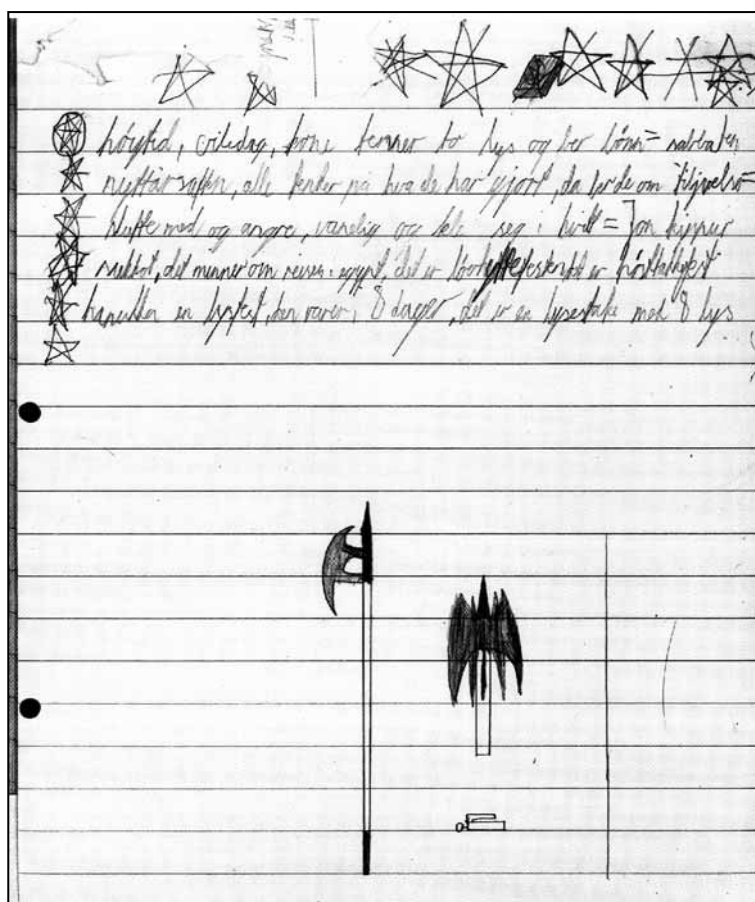 høytid, viledag, kone tenner to lys og ber bønn = sabbaten
nyttårsaften, alle tenker på hva de har gjort, da ber de om tiljvelse
slutte med og angre, vanlig og kle seg i hvitt = jon kippur
sukkot, det minner om reisen i egypt, det er høsttakkfest
hanukka en lysfest, den varer i 8 dager, det er en lysestake med 8 lys